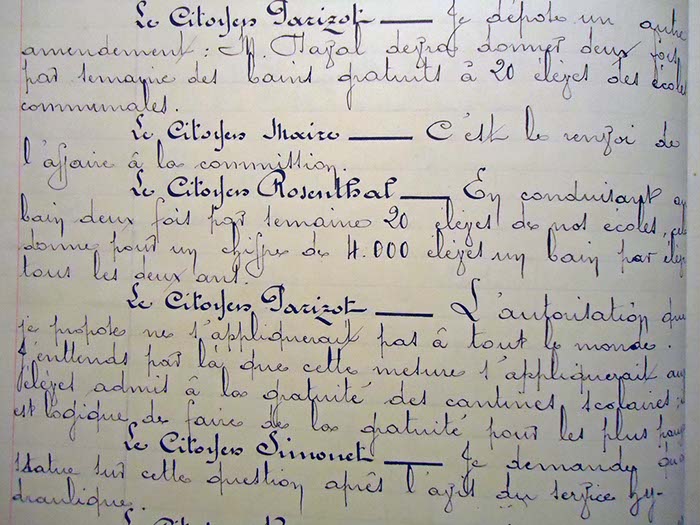 Le Citoyen Parizot — Je dépose un autre
amendement : M. Hazal devra donner deux fois
par semaine des bains gratuits à 20 élèves des écoles
communales.
Le Citoyen Maire — C'est le renvoi de
l'affaire à la commission.
Le Citoyen Rosenthal — En conduisant au
bain deux fois par semaine 20 élèves de nos écoles, cela
donne pour un chiffre de 4.000 élèves un bain par élève
tous les deux ans.
Le Citoyen Parizot — L'autorisation que
je propose ne s'appliquerait pas à tout le monde.
J'entends par là que cette mesure s'appliquerait aux
élèves admis à la gratuité des cantines scolaires ; il
est logique de faire de la gratuité pour les plus pauvres
Le Citoyen Simonet — Je demande qu'on
statue sur cette question après l'avis du service hy-
draulique.
Le Citoyen